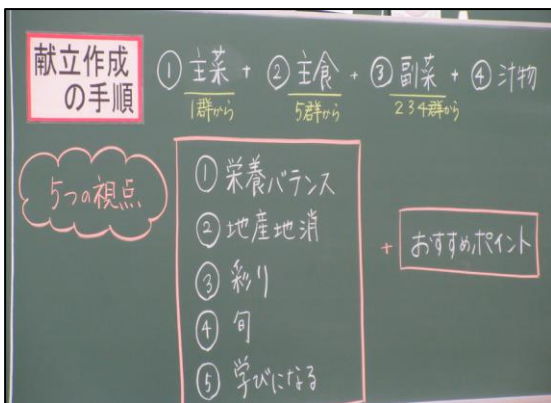 献立作成
の手順
① 主菜 + ② 主食 + ③ 副菜 + ④ 汁物
1群から 5群から 234群から
5つの視点
① 栄養バランス
② 地産地消
③ 彩り
④ 旬
⑤ 学びになる
+ おすすめポイント